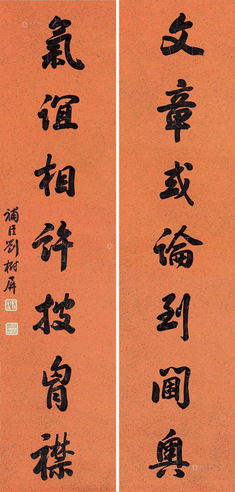 文章或論到閫奧
氣誼相許披胷襟
補臣劉樹屏